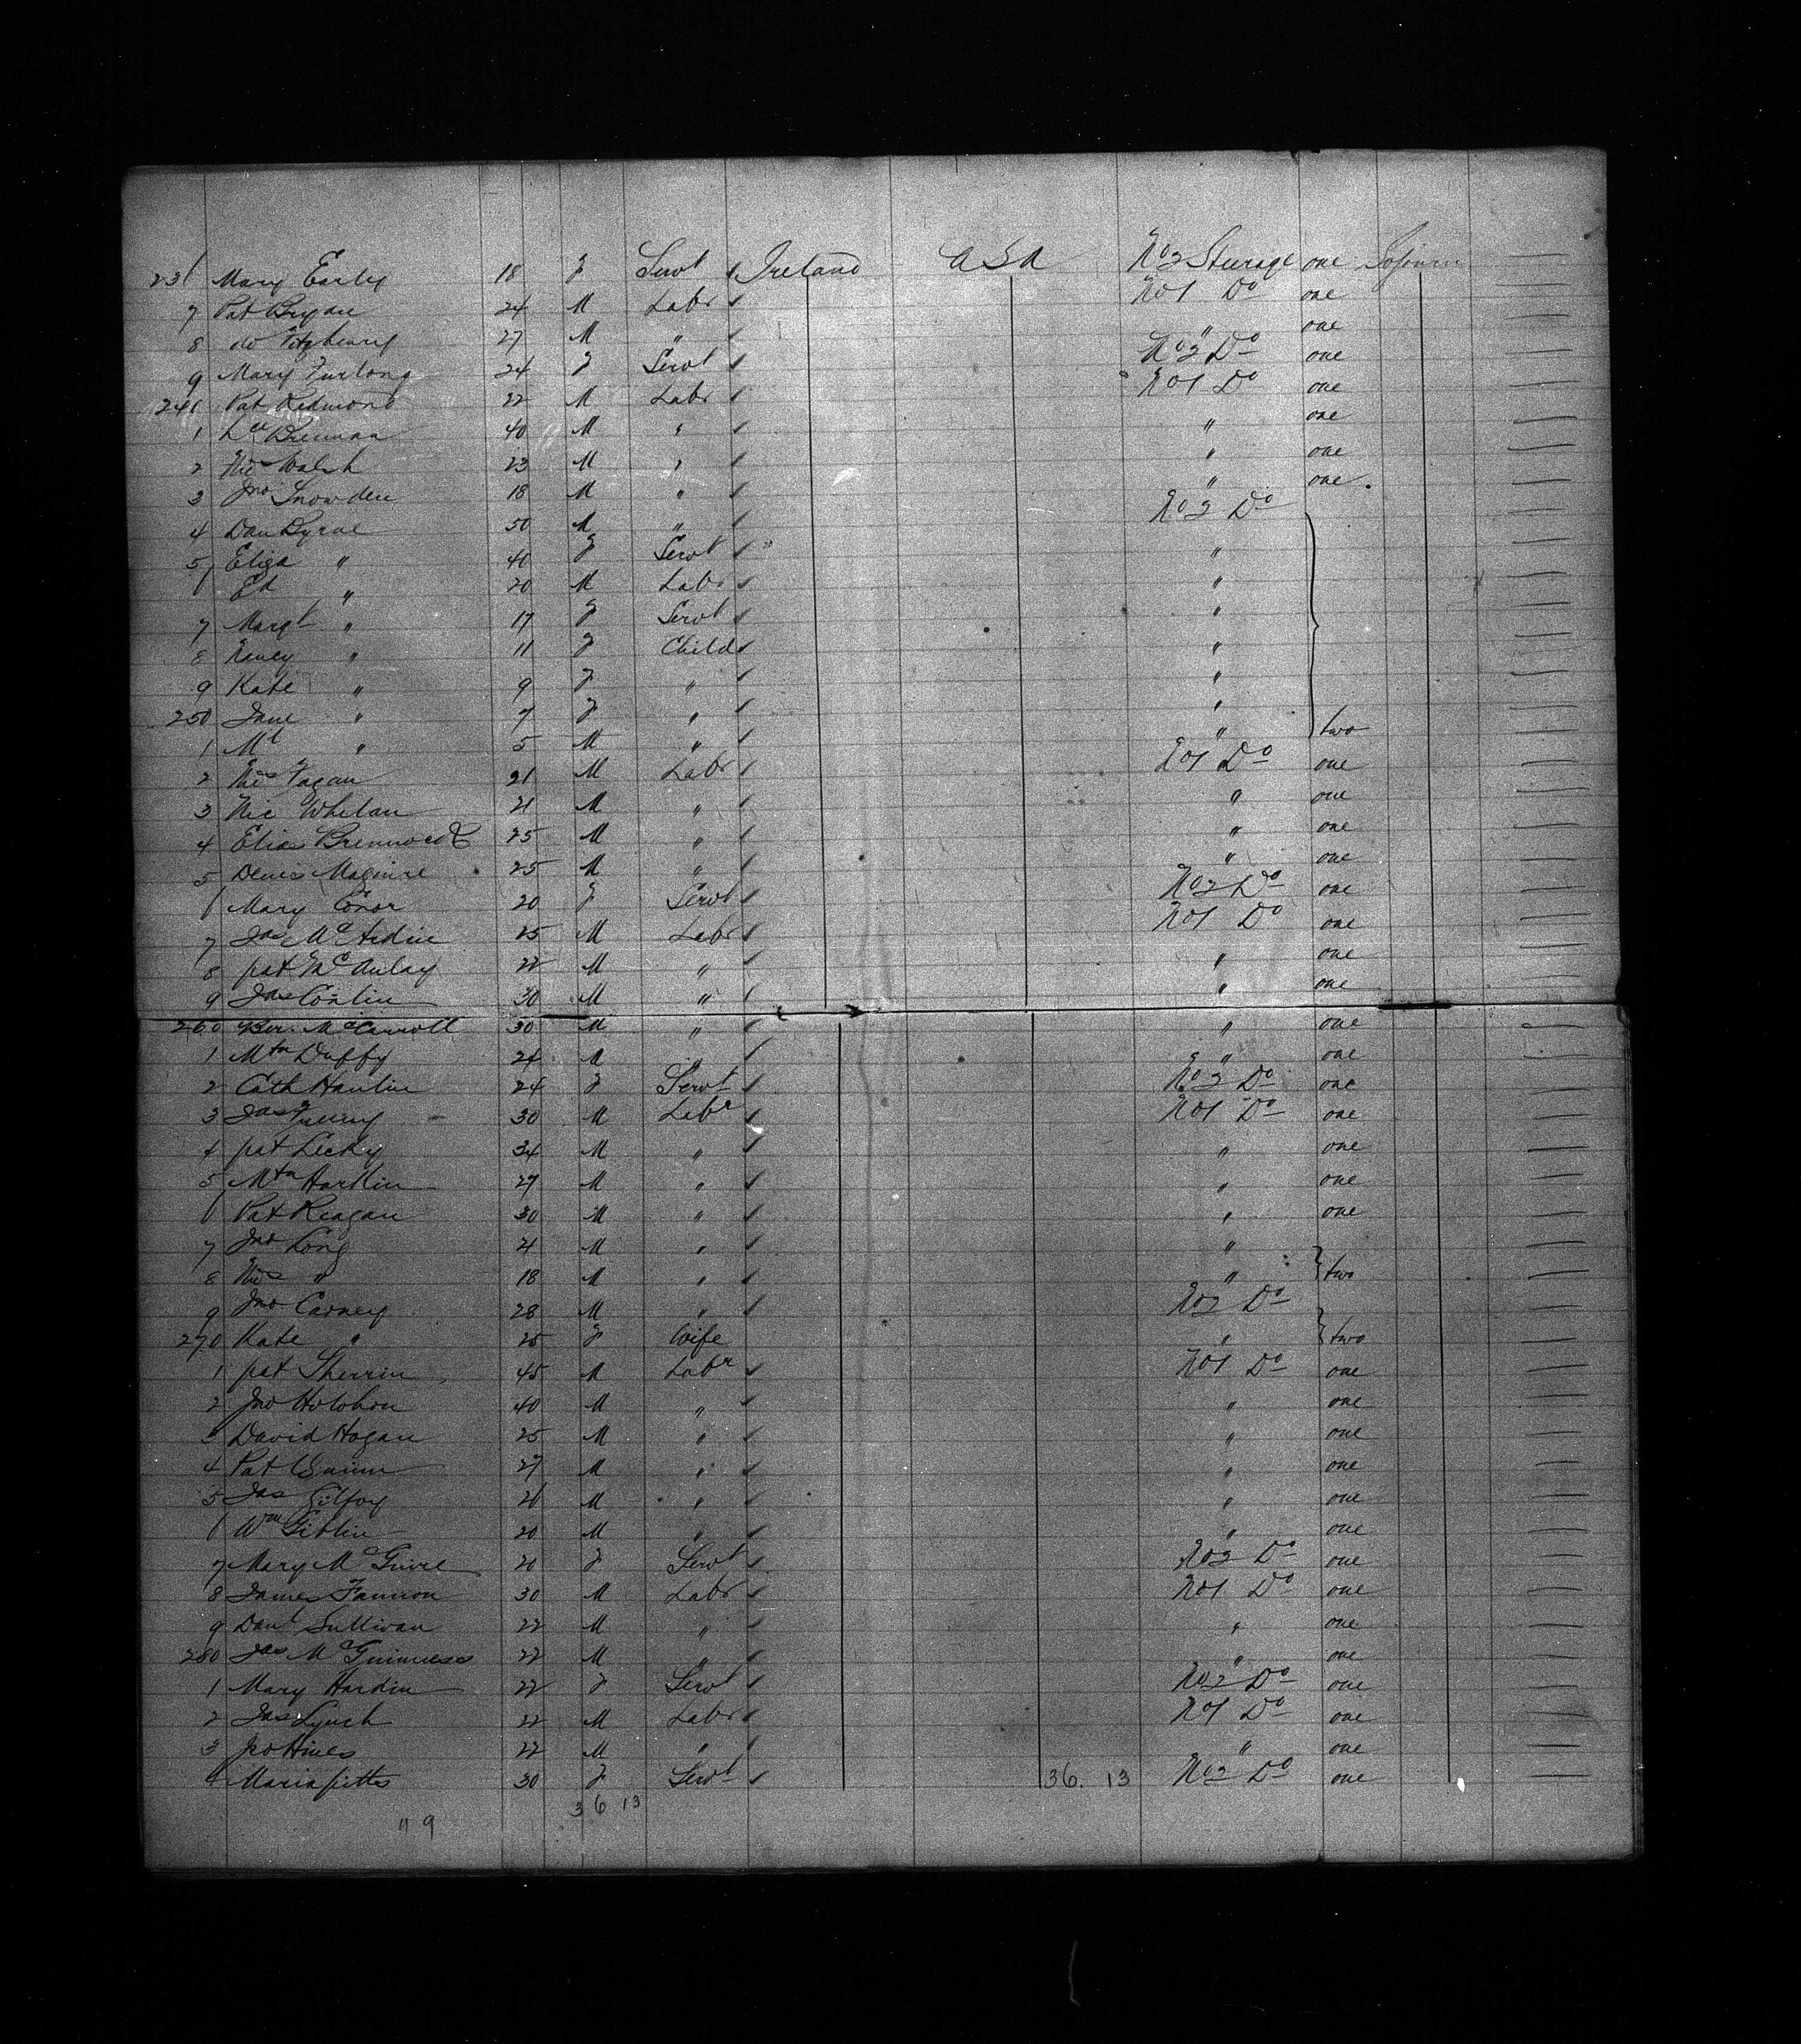 236 Mary Early 18 F Servt Ireland USA No 2 Sturage one Sojourn
7 Pat Bryan 24 M Labr No 1 Do one
8 do Fitzhenry 27 M " " one
9 Mary Furlong 24 F Servt No 2 Do one
240 Pat Redmond 22 M Labr No 1 Do one
1 Brennan 40 M " " one
2 Walsh 23 M " " one
3 Jno Snowden 18 M " " one
4 Dan Byrne 50 M " No 2 Do
5 Eliza " 40 F Servt "
6 Ed " 20 M Labr "
7 Margt " 17 F Servt "
8 Nancy " 11 F Child "
9 Kate " 9 F " "
250 Jane " 7 F " "
1 Ml " 5 M " " two
2 Fagan 21 M Labr No 1 Do one
3 Nic Whelan 21 M " " one
4 Elias 25 M " " one
5 Denis Maguire 25 M " " one
6 Mary Conor 20 F Servt No 2 Do one
7 Jas McArdine 25 M Labr No 1 Do one
8 pat McAulay 22 M " " one
9 Jas Conlin 30 M " " one
260 McCarroll 30 M " " one
1 Mtn Duffy 24 M " " one
2 Cath Hanlin 24 F Servt No 2 Do one
3 Jas 30 M Labr No 1 Do one
4 pat Lecky 34 M " " one
5 Mtn Harkin 27 M " " one
6 Pat Reagan 30 M " " one
7 Jno Long 21 M " "
8 " 18 M " " two
9 Jno Carney 28 M " No 2 Do
270 Kate " 25 F Wife " two
1 pat Sherrin 45 M Labr No 1 Do one
2 Jno Holohon 40 M " " one
3 David Hogan 25 M " " one
4 Pat Quinn 27 M " " one
5 Jas Gilfoy 21 M " " one
6 Wm Giblin 20 M " " one
7 Mary McGuire 20 F Servt No 2 Do one
8 James Fannon 30 M Labr No 1 Do one
9 Danl Sullivan 22 M " " one
280 Jas McGuinness 22 M " " one
1 Mary Hardin 22 F Servt No 2 Do one
2 Jas Lynch 22 M Labr No 1 Do one
3 Hines 22 M " " one
4 Maria pitts 30 F Servt 36. 13 No 2 Do one
36 13
" 9